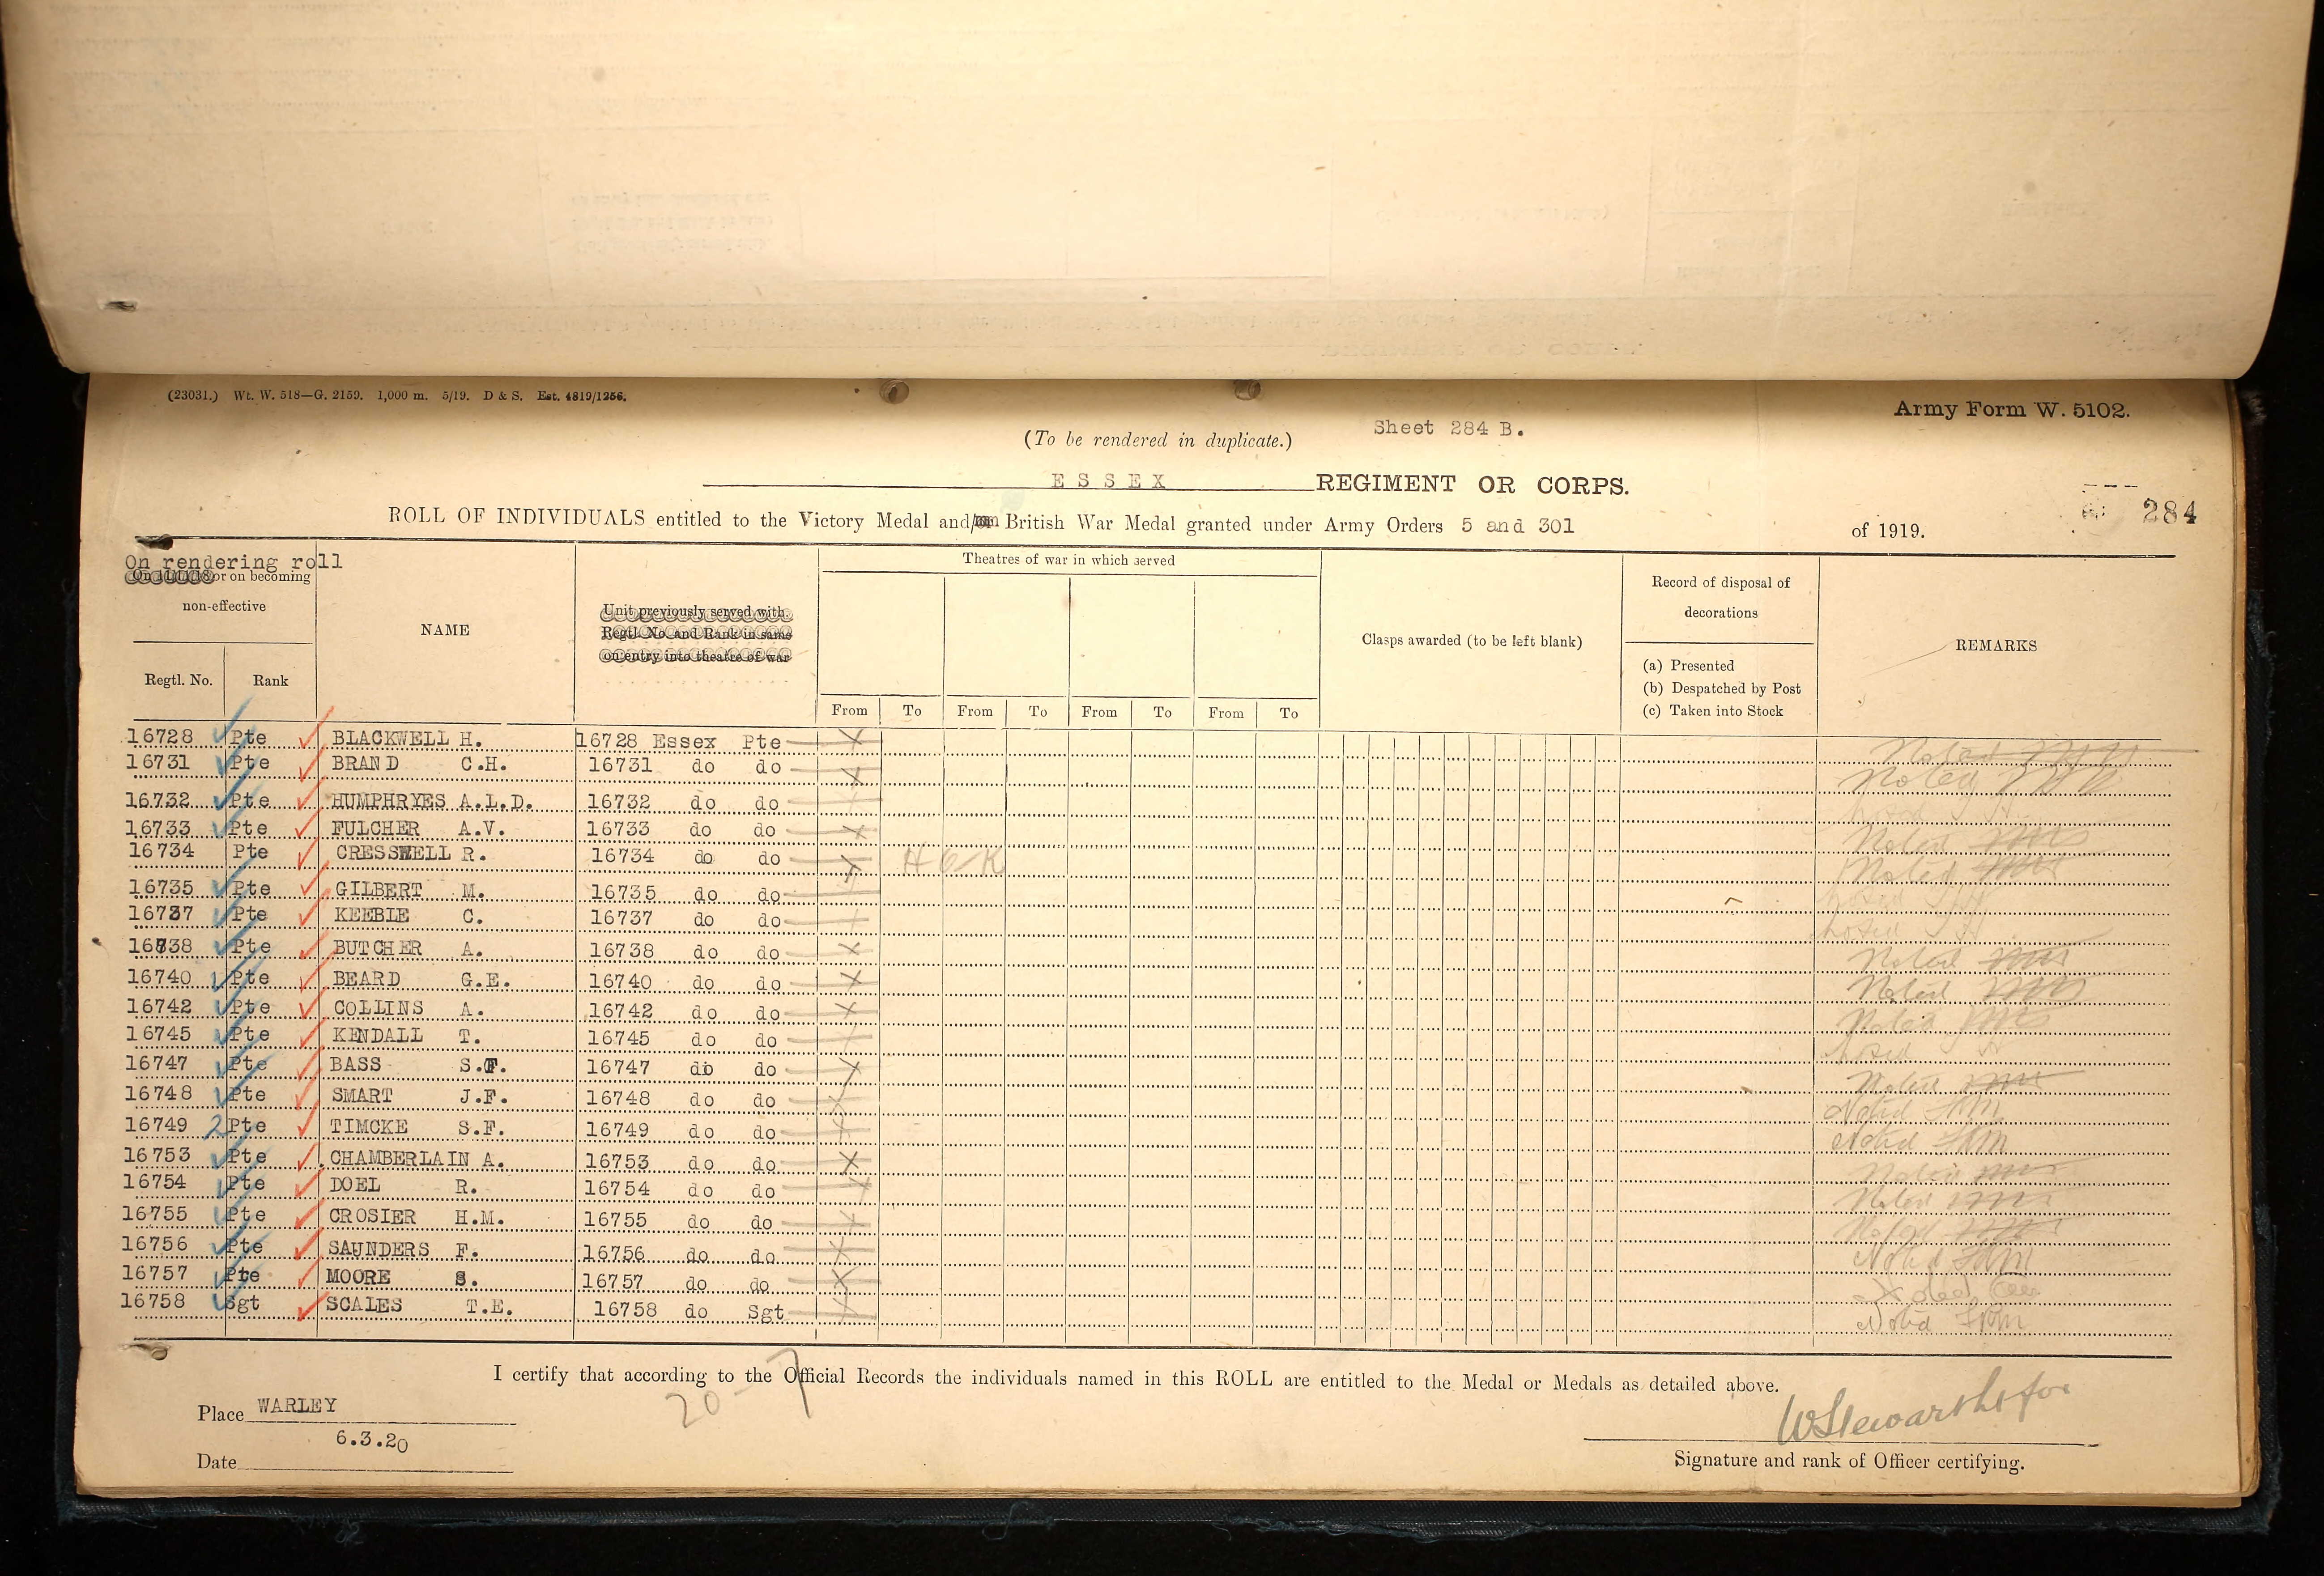 (23031.) Wt. W. 518—G. 2159. 1,000 m. 5/19. D & S. Est. 4819/1256.
Army Form W. 5102.
(To be rendered in duplicate.) Sheet 284 B.
ESSEX REGIMENT OR CORPS.
284
ROLL OF INDIVIDUALS entitled to the Victory Medal and/or British War Medal granted under Army Orders 5 and 301 of 1919.
On rendering roll
or on becoming
non-effective
Regtl. No. Rank
NAME
Unit previously served with.
Regtl. No. and Rank in same
on entry into theatre of war
Theatres of war in which served
From To From To From To From To
Clasps awarded (to be left blank)
Record of disposal of
decorations
(a) Presented
(b) Despatched by Post
(c) Taken into Stock
REMARKS
16728 Pte BLACKWELL H. 16728 Essex Pte Noted
16731 Pte BRAND C.H. 16731 do do Noted
16732 Pte HUMPHRYES A.L.D. 16732 do do Noted
16733 Pte FULCHER A.V. 16733 do do Noted
16734 Pte CRESSWELL R. 16734 do do Noted
16735 Pte GILBERT M. 16735 do do Noted
16737 Pte KEEBLE C. 16737 do do Noted
16738 Pte BUTCHER A. 16738 do do Noted
16740 Pte BEARD G.E. 16740 do do Noted
16742 Pte COLLINS A. 16742 do do Noted
16745 Pte KENDALL T. 16745 do do Noted
16747 Pte BASS S.F. 16747 do do Noted
16748 Pte SMART J.F. 16748 do do Noted
16749 2 Pte TIMCKE S.F. 16749 do do Noted
16753 Pte CHAMBERLAIN A. 16753 do do Noted
16754 Pte DOEL R. 16754 do do Noted
16755 Pte CROSIER H.M. 16755 do do Noted
16756 Pte SAUNDERS F. 16756 do do Noted
16757 Pte MOORE S. 16757 do do Noted
16758 Sgt SCALES T.E. 16758 do Sgt Noted
I certify that according to the Official Records the individuals named in this ROLL are entitled to the Medal or Medals as detailed above.
20-7
Place WARLEY
6.3.20
Date
Signature and rank of Officer certifying.